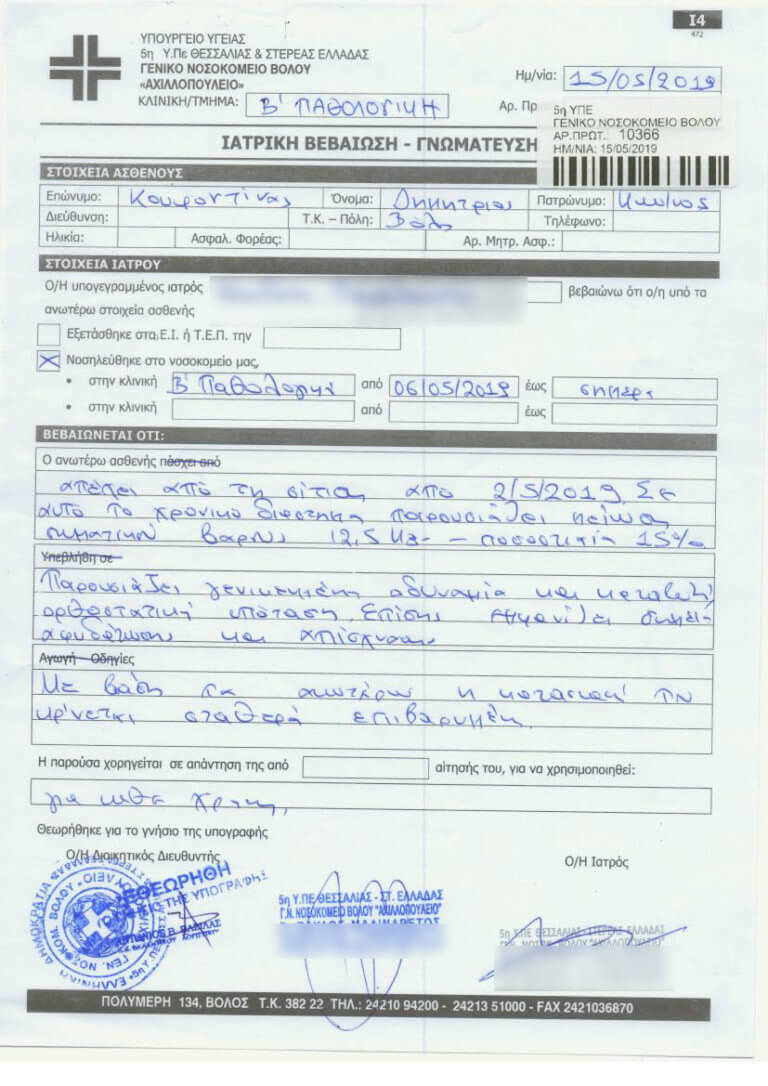 I4
472
ΥΠΟΥΡΓΕΙΟ ΥΓΕΙΑΣ
5η Υ.Πε ΘΕΣΣΑΛΙΑΣ & ΣΤΕΡΕΑΣ ΕΛΛΑΔΑΣ
ΓΕΝΙΚΟ ΝΟΣΟΚΟΜΕΙΟ ΒΟΛΟΥ
«ΑΧΙΛΛΟΠΟΥΛΕΙΟ»
ΚΛΙΝΙΚΗ/ΤΜΗΜΑ: Β' ΠΑΘΟΛΟΓΙΚΗ
Ημ/νία: 15/05/2019
Αρ. Πρ
5η ΥΠΕ
ΓΕΝΙΚΟ ΝΟΣΟΚΟΜΕΙΟ ΒΟΛΟΥ
ΑΡ.ΠΡΩΤ.: 10366
ΗΜ/ΝΙΑ: 15/05/2019
ΙΑΤΡΙΚΗ ΒΕΒΑΙΩΣΗ - ΓΝΩΜΑΤΕΥΣΗ
ΣΤΟΙΧΕΙΑ ΑΣΘΕΝΟΥΣ
Επώνυμο: Κουφοντίνας Όνομα: Δημήτριος Πατρώνυμο:
Διεύθυνση: Τ.Κ. – Πόλη: Βόλος Τηλέφωνο:
Ηλικία: Ασφαλ. Φορέας: Αρ. Μητρ. Ασφ.:
ΣΤΟΙΧΕΙΑ ΙΑΤΡΟΥ
Ο/Η υπογεγραμμένος ιατρός βεβαιώνω ότι ο/η υπό τα
ανωτέρω στοιχεία ασθενής
Εξετάσθηκε στα Ε.Ι. ή Τ.Ε.Π. την
Νοσηλεύθηκε στο νοσοκομείο μας,
• στην κλινική Β' Παθολογική από 06/05/2019 έως σήμερα
• στην κλινική από έως
ΒΕΒΑΙΩΝΕΤΑΙ ΟΤΙ:
Ο ανωτέρω ασθενής πάσχει από
απέχει από τη σίτιση από 2/5/2019 Σε
αυτό το χρονικό διάστημα παρουσιάζει μείωση
σωματικού βάρους 12,5 Kg - ποσοστιαία 15%
Υπεβλήθη σε
Παρουσιάζει γενικευμένη αδυναμία και καταβολή
ορθοστατική υπόταση. Επίσης εμφανίζει σημεία
αφυδάτωσης και απίσχνανση
Αγωγή – Οδηγίες
Με βάση τα ανωτέρω η κατάστασή του
κρίνεται σταθερά επιβαρυμένη.
Η παρούσα χορηγείται σε απάντηση της από αίτησής του, για να χρησιμοποιηθεί:
για κάθε χρήση
Θεωρήθηκε για το γνήσιο της υπογραφής
Ο/Η Διοικητικός Διευθυντής
Ο/Η Ιατρός
ΕΘΕΩΡΗΘΗ
ΤΗΣ ΥΠΟΓΡΑΦΗΣ
5η Υ.ΠΕ ΘΕΣΣΑΛΙΑΣ - ΣΤ. ΕΛΛΑΔΑΣ
Γ.Ν. ΝΟΣΟΚΟΜΕΙΟ ΒΟΛΟΥ "ΑΧΙΛΛΟΠΟΥΛΕΙΟ"
5η Υ.ΠΕ ΘΕΣΣΑΛΙΑΣ - ΣΤΕΡΕΑΣ ΕΛΛΑΔΑΣ
ΓΕΝ. ΝΟΣΟΚ. ΒΟΛΟΥ "ΑΧΙΛΛΟΠΟΥΛΕΙΟ"
ΠΟΛΥΜΕΡΗ 134, ΒΟΛΟΣ Τ.Κ. 382 22 ΤΗΛ.: 24210 94200 - 24213 51000 - FAX 2421036870